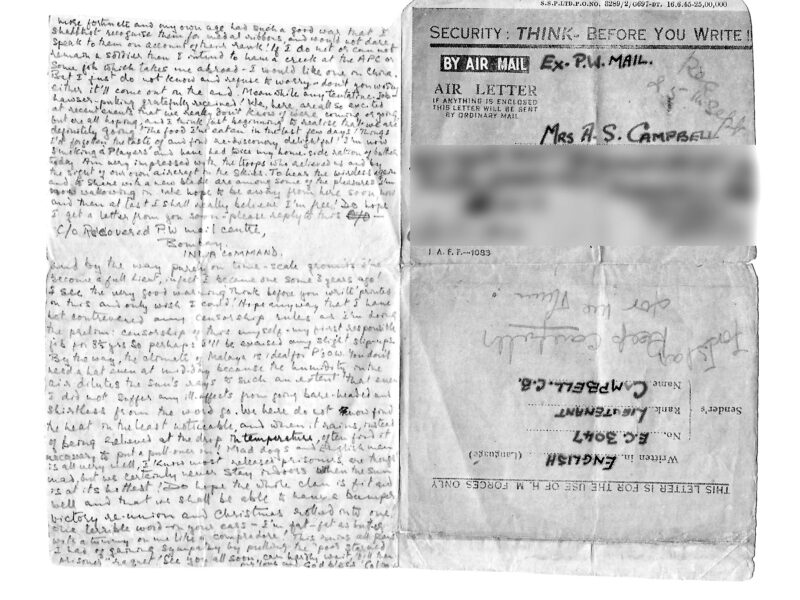 more fortunate and my own age had such a good war that I
shall not recognise them for medal ribbons and would not dare
speak to them on account of their rank! If I do not or cannot
remain a soldier then I intend to have a crack at the APC or
some job which takes me abroad - I would like one in China.
But I just do not know and refuse to worry - don't you worry
either it'll come out in the end. Meanwhile any tentative job-
gratefully received! We, here are all so excited
at recent events that we really don't know if we're coming or going
but we all hope, and I think just beginning to realise that we are
definitely going! The food I've eaten in the last few days! Things
I'd forgotten the taste of and find re-discovery delightful! I'm now
smoking a Players and have had twice my home-side ration of butter
today. Am very impressed with the troops who relieved us and by
the sight of our own aircraft in the skies. To hear the wireless again
and to shave with a new blade are among some of the pleasures I'm
now wallowing in. We hope to be away from here soon now
and then at last I shall really believe I'm free! Do hope
I get a letter from you soon - please reply to this
C/o Recovered P.W mail centre,
Bombay.
INDIA COMMAND.
And by the way purely on time-scale grounds I've
become a full Lieut, in fact I became one some 3 years ago!
I see the very good warning 'Think before you write' printed
on this and only wish I could! Hope anyway that I have
not contravened any censorship rules as I'm doing
the prelim: censorship of those myself - my first responsible
job for 3½ yrs so perhaps I'll be excused any slight slip-ups.
By the way, the climate of Malaya is ideal for P's.O.W. You don't
need a hat even at mid-day because the humidity in the
air dilutes the sun's rays to such an extent that even
I did not suffer any ill-effects from going bare-headed and
shirtless from the word go. We here do not now find
the heat in the least noticeable, and when it rains, instead
of being relieved at the drop in temperature, often find it
necessary to put a pull-over on! Mad dogs and Englishmen
is all very well, I know most released prisoners are though
mad, but we certainly never stay indoors when the sun
is at its hottest! Do hope the whole clan is fit and
well and that we shall be able to have a bumper
victory re-union and Christmas rolled into one,
one terrible word in your ears - I'm fat - fat as butter
with a tummy on me like a compradore. This ruins all plans
I had of gaining sympathy by pulling the poor starved
prisoner racquet! See you all soon, can hardly wait till then
and God bless Colin
S.S.P. LTD. P.O. NO. 3289/2, G697-DT. 16.6.45-25,00,000
SECURITY: THINK - BEFORE YOU WRITE !!
BY AIR MAIL EX-P.W. MAIL.
AIR LETTER
IF ANYTHING IS ENCLOSED
THIS LETTER WILL BE SENT
BY ORDINARY MAIL
MRS A. S. CAMPBELL
I. A. F. F.—1083
Keep carefully
for me Mum.
THIS LETTER IS FOR THE USE OF H. M. FORCES ONLY
Written in ENGLISH (Language)
Sender's
No. E.C. 3047
Rank LIEUTENANT
Name CAMPBELL. C.B.